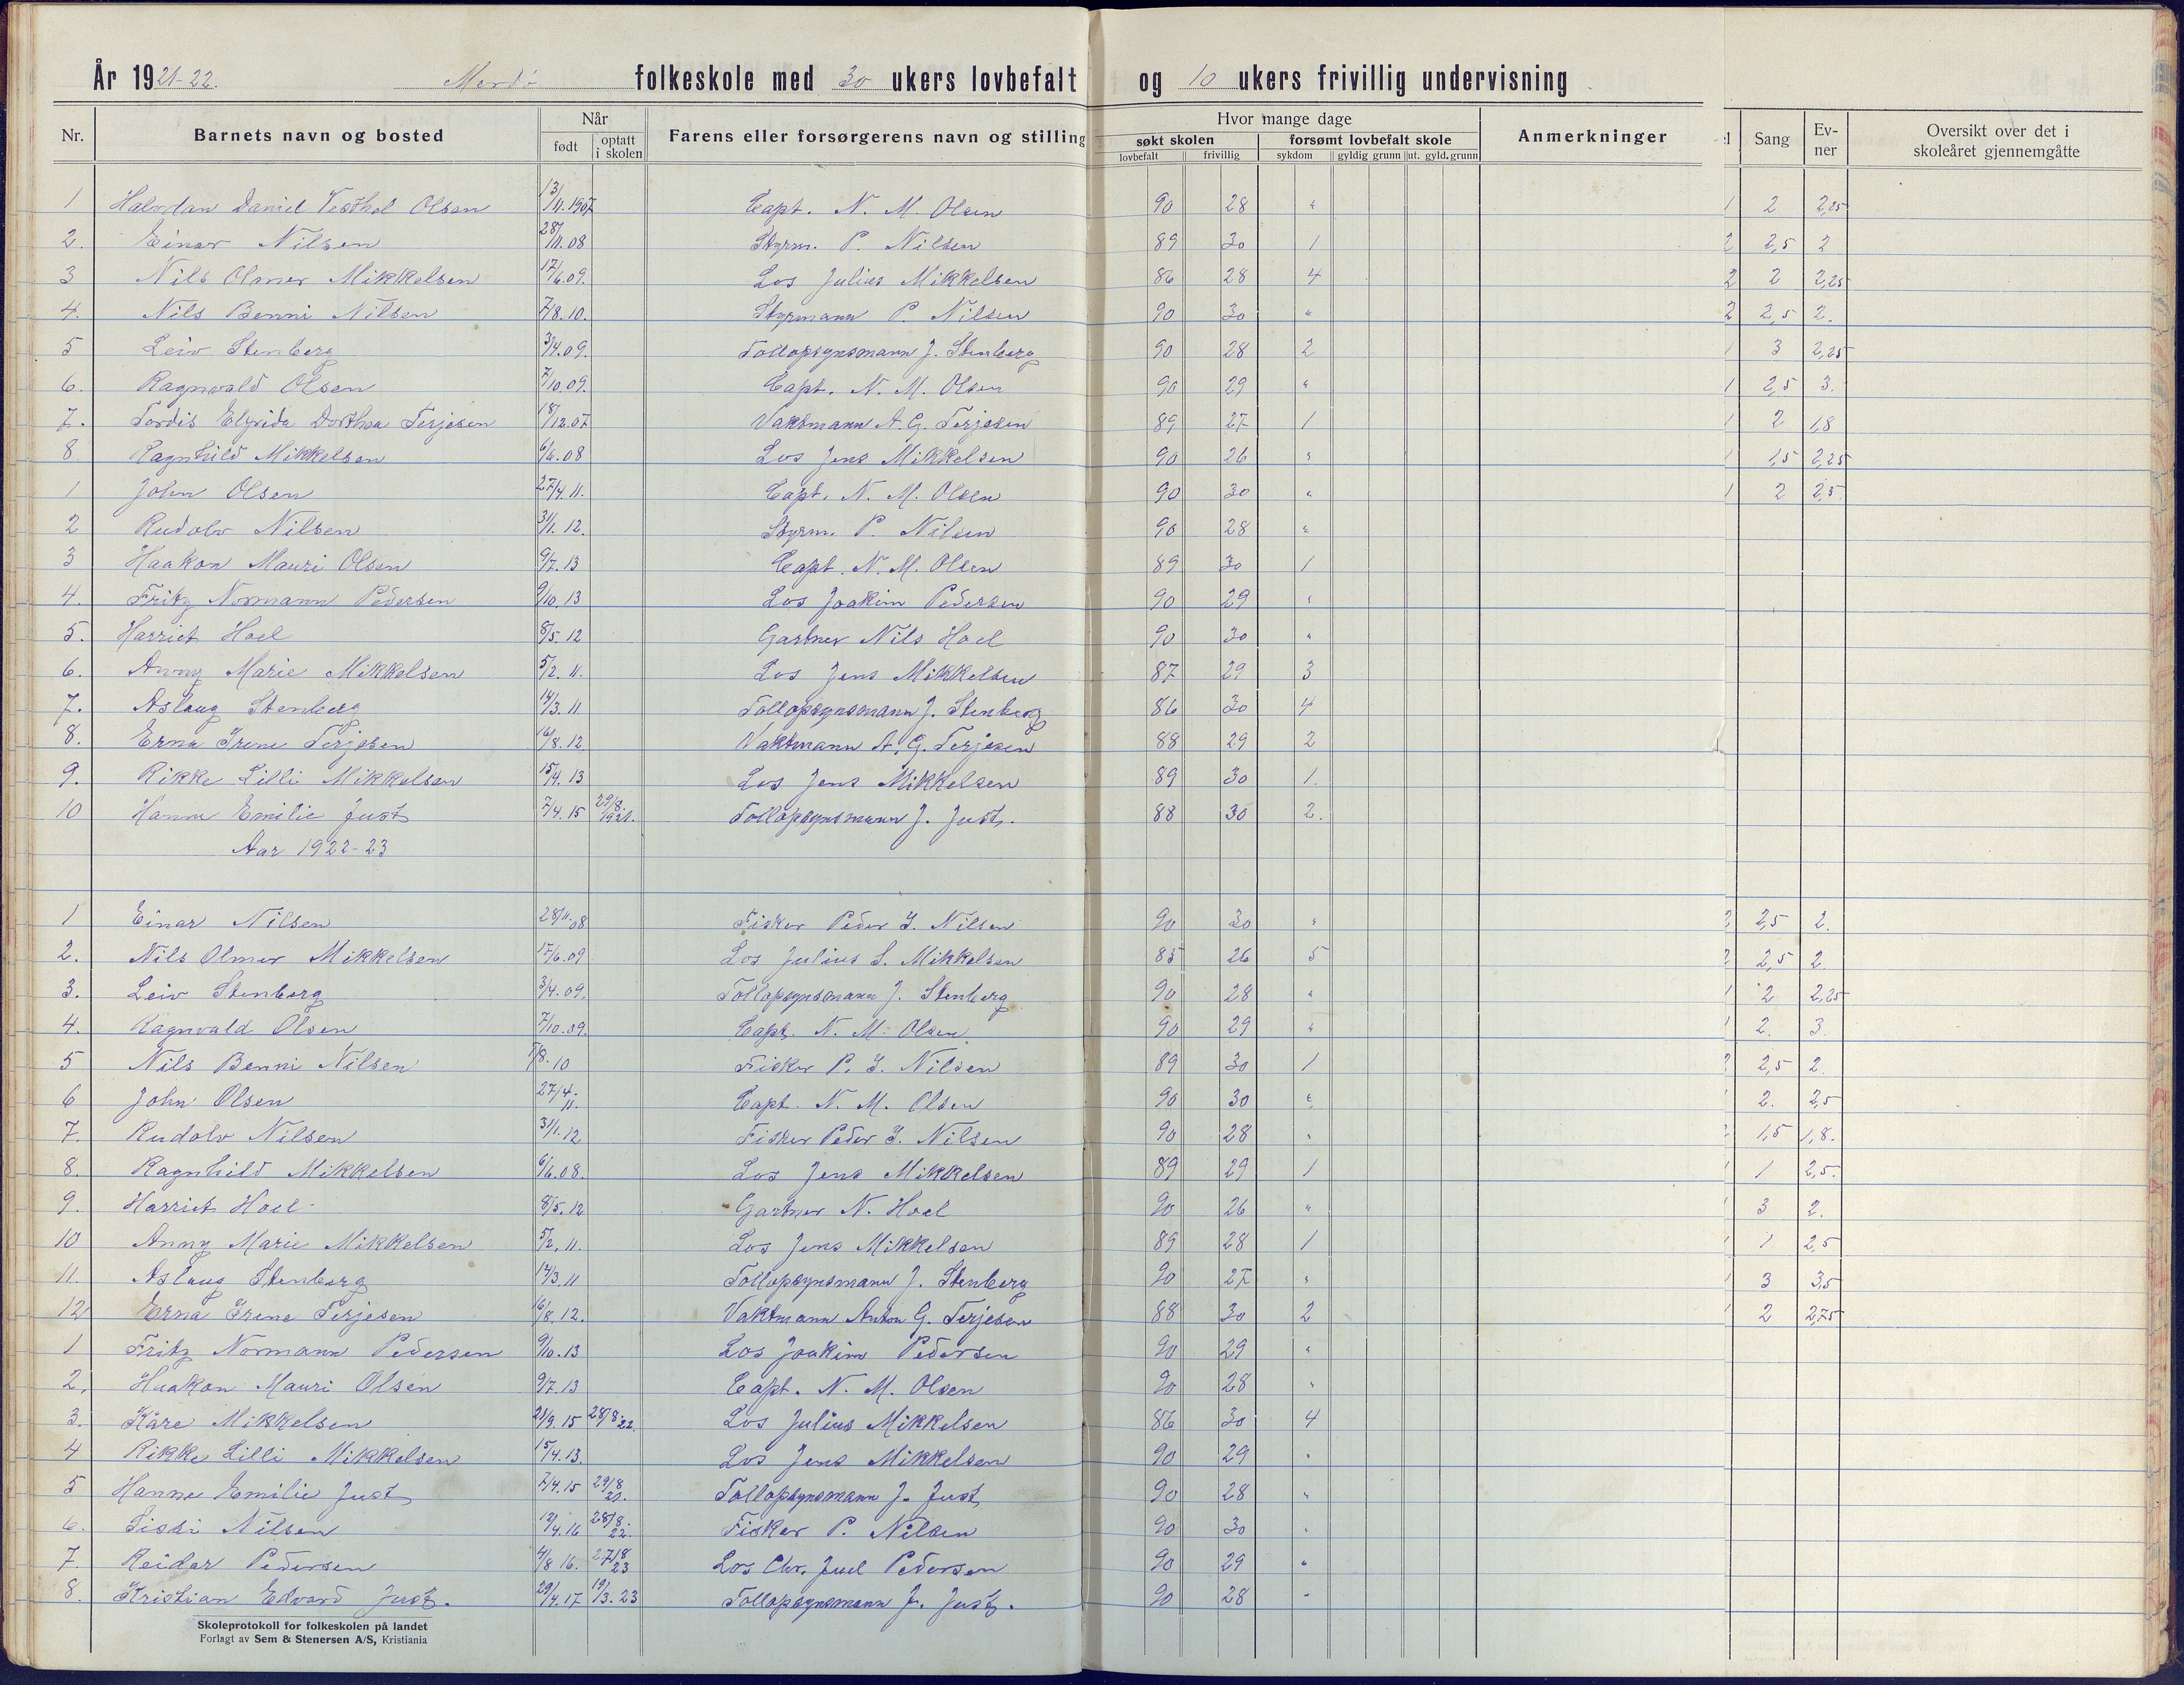 År 1921-22. Merdø folkeskole med 30 ukers lovbefalt og 10 ukers frivillig undervisning
Nr. Barnets navn og bosted Når født optatt i skolen Farens eller forsørgerens navn og stilling Hvor mange dage søkt skolen lovbefalt frivillig forsømt lovbefalt skole sykdom gyldig grunn ut. gyld. grunn Anmerkninger l Sang Evner Oversikt over det i skoleåret gjennemgåtte
1 Halvdan Daniel Olsen 13/11.1907 Capt. N. M. Olsen 90 28 " 1 2 2,25
2. Einar Nilsen 28/11.08 Styrm. P. Nilsen 89 30 1 2 2,5 2
3 Nils Olmer Mikkelsen 17/6.09. Los Julius Mikkelsen 86 28 4 2 2 2,25
4. Nils Benni Nilsen 7/8.10. Styrmann P. Nilsen 90 30 " 2 2,5 2.
5 Leiv Stenberg 3/4.09. Tollopsynsmann J. Stenberg 90 28 2 1 3 2,25
6. Ragnvald Olsen 7/10.09. Capt. N. M. Olsen 90 29 " 1 2,5 3.
7. Tordis Elfrida Dorthea Terjesen 18/12.07 Vaktmann A. G. Terjesen 89 27 1 1 2 1,8
8. Ragnhild Mikkelsen 6/6.08 Los Jens Mikkelsen 90 26 " 1 1,5 2,25
1 John Olsen 27/4.11. Capt. N. M. Olsen 90 30 " 1 2 2,5
2 Rudolv Nilsen 31/1.12. Styrm. P. Nilsen 90 28 "
3 Haakon Mauri Olsen 9/7.13 Capt. N. M. Olsen 89 30 1
4. Fritz Normann Pedersen 9/10.13 Los Joakim Pedersen 90 29 "
5. Harriet Hoel 8/5.12 Gartner Nils Hoel 90 30 "
6. Anny Marie Mikkelsen 5/2.11. Los Jens Mikkelsen 87 29 3
7. Aslaug Stenberg 14/3.11 Tollopsynsmann J. Stenberg 86 30 4
8. Erna Irene Terjesen 16/8.12 Vaktmann A. G. Terjesen 88 29 2
9. Rikke Lilli Mikkelsen 15/4.13 Los Jens Mikkelsen 89 30 1.
10 Hanne Emilie Just 7/4.15 29/8.1921. Tollopsynsmann J. Just. 88 30 2.
Aar 1922-23
1 Einar Nilsen 28/11.08 Fisker Peder J. Nilsen 90 30 " 2 2,5 2.
2. Nils Olmer Mikkelsen 17/6.09 Los Julius S. Mikkelsen 85 26 5 2 2,5 2
3. Leiv Stenberg 3/4.09. Tollopsynsmann J. Stenberg 90 28 " 1 2 2,25
4. Ragnvald Olsen 7/10.09. Capt. N. M. Olsen 90 29 " 1 2. 3.
5 Nils Benni Nilsen 7/8.10 Fisker P. J. Nilsen 89 30 1 2 2,5 2.
6 John Olsen 27/4.11. Capt. N. M. Olsen 90 30 " 1 2. 2,5
7. Rudolv Nilsen 31/1.12 Fisker Peder J. Nilsen 90 28 " 1,5 1,8.
8. Ragnhild Mikkelsen 6/6.08. Los Jens Mikkelsen 89 29 1 1 1 2,5.
9. Harriet Hoel 8/5.12 Gartner N. Hoel 90 26 " 1 3 2.
10 Anny Marie Mikkelsen 5/2.11. Los Jens Mikkelsen 89 28 1 1 1 2,5
11. Aslaug Stenberg 14/3.11 Tollopsynsmann J. Stenberg 90 27 " 1 3 3,5
12 Erna Irene Terjesen 16/8.12. Vaktmann Anton G. Terjesen 88 30 2 1 2 2,75
1 Fritz Normann Pedersen 9/10.13 Los Joakim Pedersen 90 29 "
2. Haakon Mauri Olsen 9/7.13 Capt. N. M. Olsen 90 28 "
3. Kåre Mikkelsen 21/9.15 28/8 22. Los Julius Mikkelsen 86 30 4
4 Rikke Lilli Mikkelsen 15/4.13. Los Jens Mikkelsen 90 29 "
5 Hanne Emilie Just 7/4.15 29/8 21. Tollopsynsmann J. Just 90 28 "
6. Nilsen 12/4.16 28/8. 22. Fisker P. Nilsen 90 30 "
7. Reidar Pedersen 4/8 16. 27/8 23 Los Chr. Juel Pedersen 90 29 "
8. Kristian Edvard Just. 29/4.17 19/3.23 Tollopsynsmann J. Just. 90 28 "
Skoleprotokoll for folkeskolen på landet
Forlagt av Sem & Stenersen A/S, Kristiania